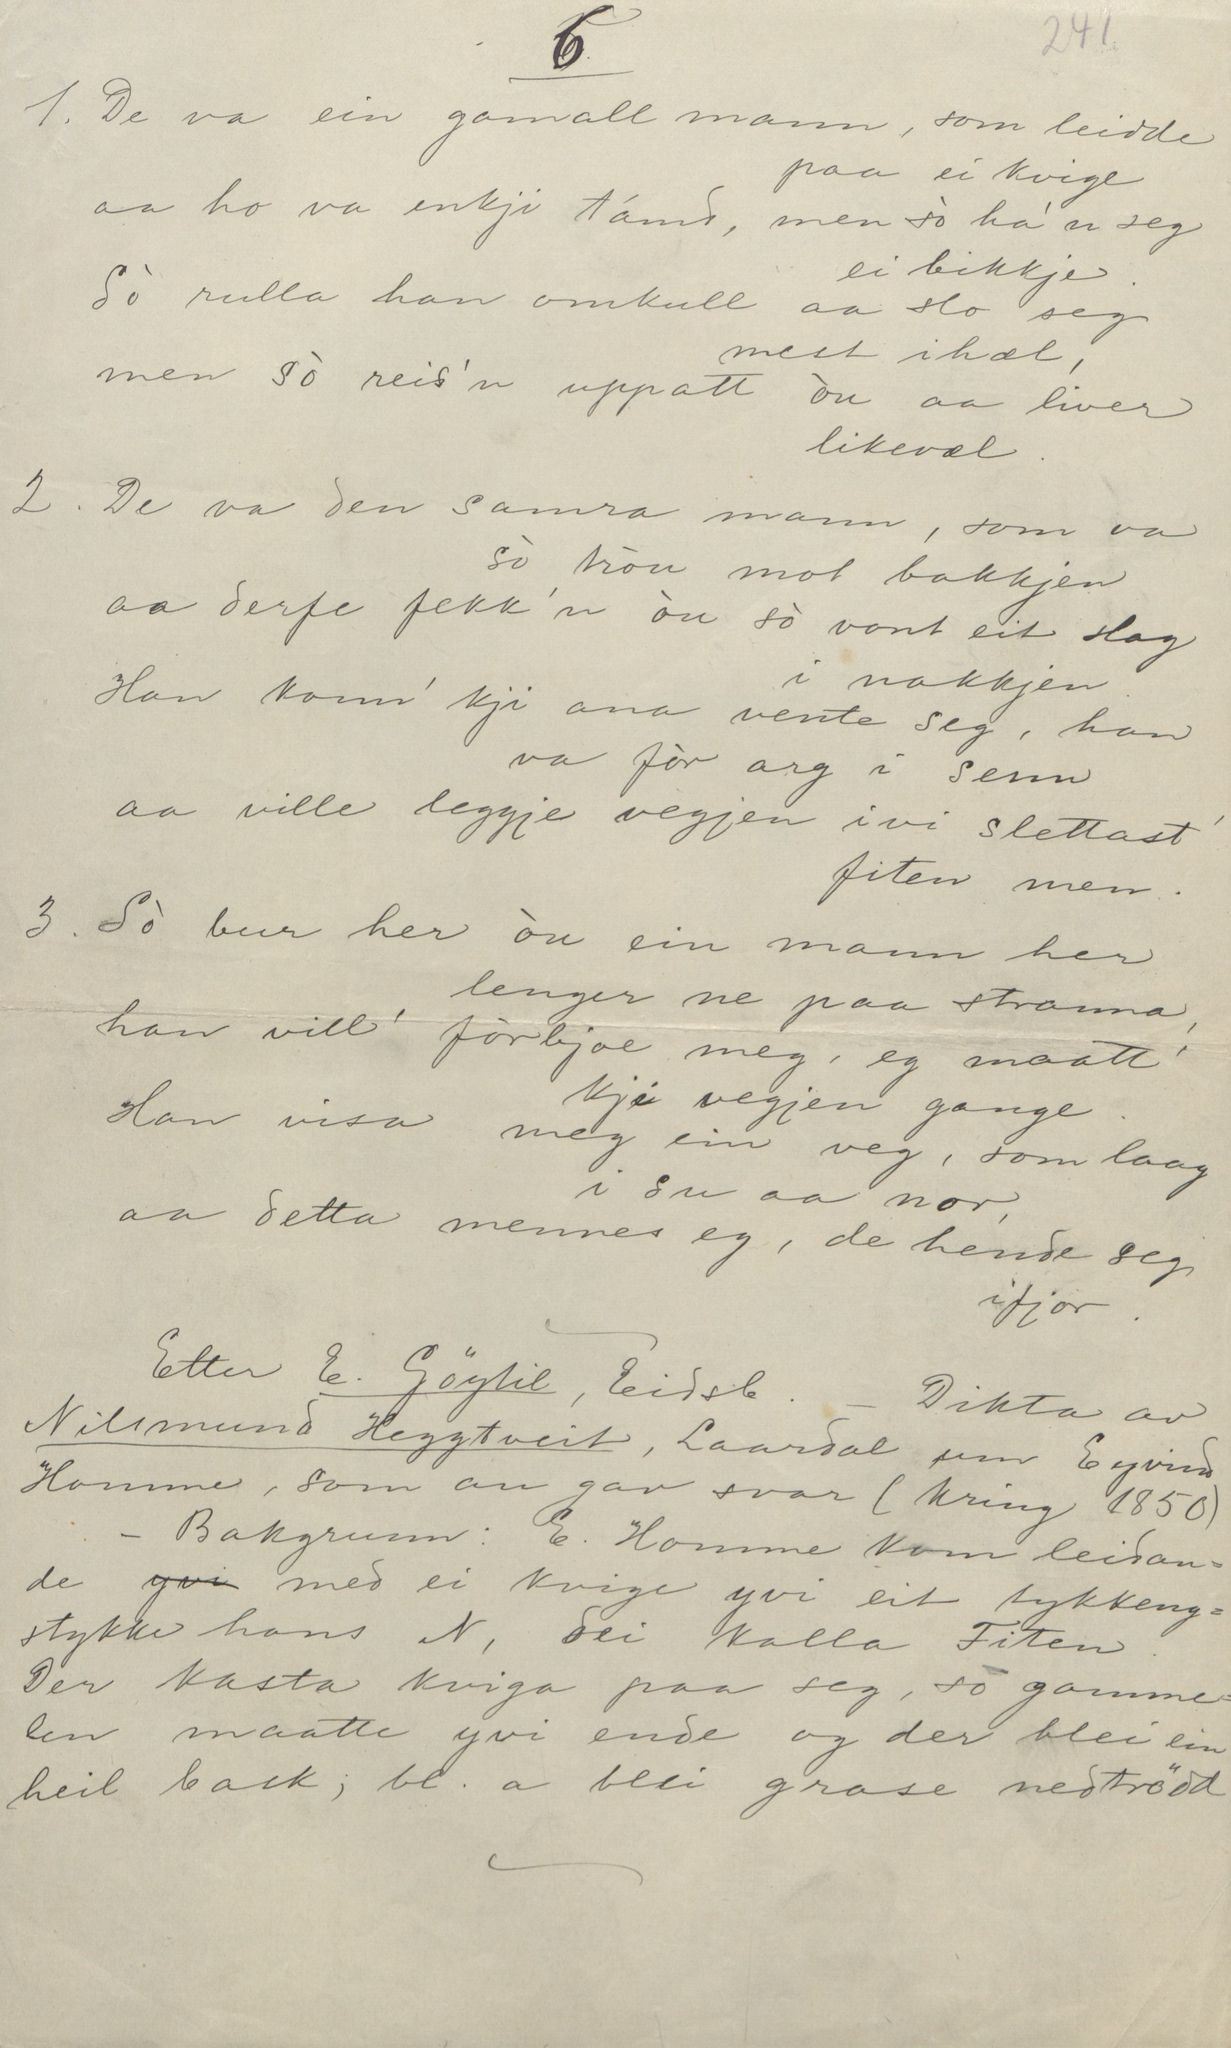 6
241.
1. De va ein gamall mann, som leidde
paa ei kvige
aa ho va enkji támd, men sò há'n seg
ei bikkje.
Sò rulla han omkull aa slo seg
mest ihæl,
men sò reis'n uppatt òu aa liver
likevæl.
2. De va den samra mann, som va
sò tròu mot bakkjen
aa derfe fekk'n òu sò vont eit slag
i nakkjen.
Han konn' kji ana vente seg, han
va fòr arg i senn
aa ville leggje vegjen ivi slettast'
fiten men.
3. Sò bur her òu ein mann her
lenger ne paa stranna,
han vill' fòrbjoe meg, eg maatt'
kji vegjen gange.
Han visa meg ein veg, som laag
i su aa nor,
aa detta mennes eg, de hende seg
ifjor.
Etter E. Göytil, Eidsb. – Dikta av
Nilsmund Heggtveit, Laardal um Eyvind
Homme, som an gav svar (kring 1850)
– Bakgrunn: E. Homme kom leidan=
de yvi med ei kvige yvi eit tykkeng=
stykke hans N, dei kalla Fiten.
Der kasta kviga paa seg, so gamme=
len maatte yvi ende og der blei ein
heil bask; bl. a blei grase nedtrödd